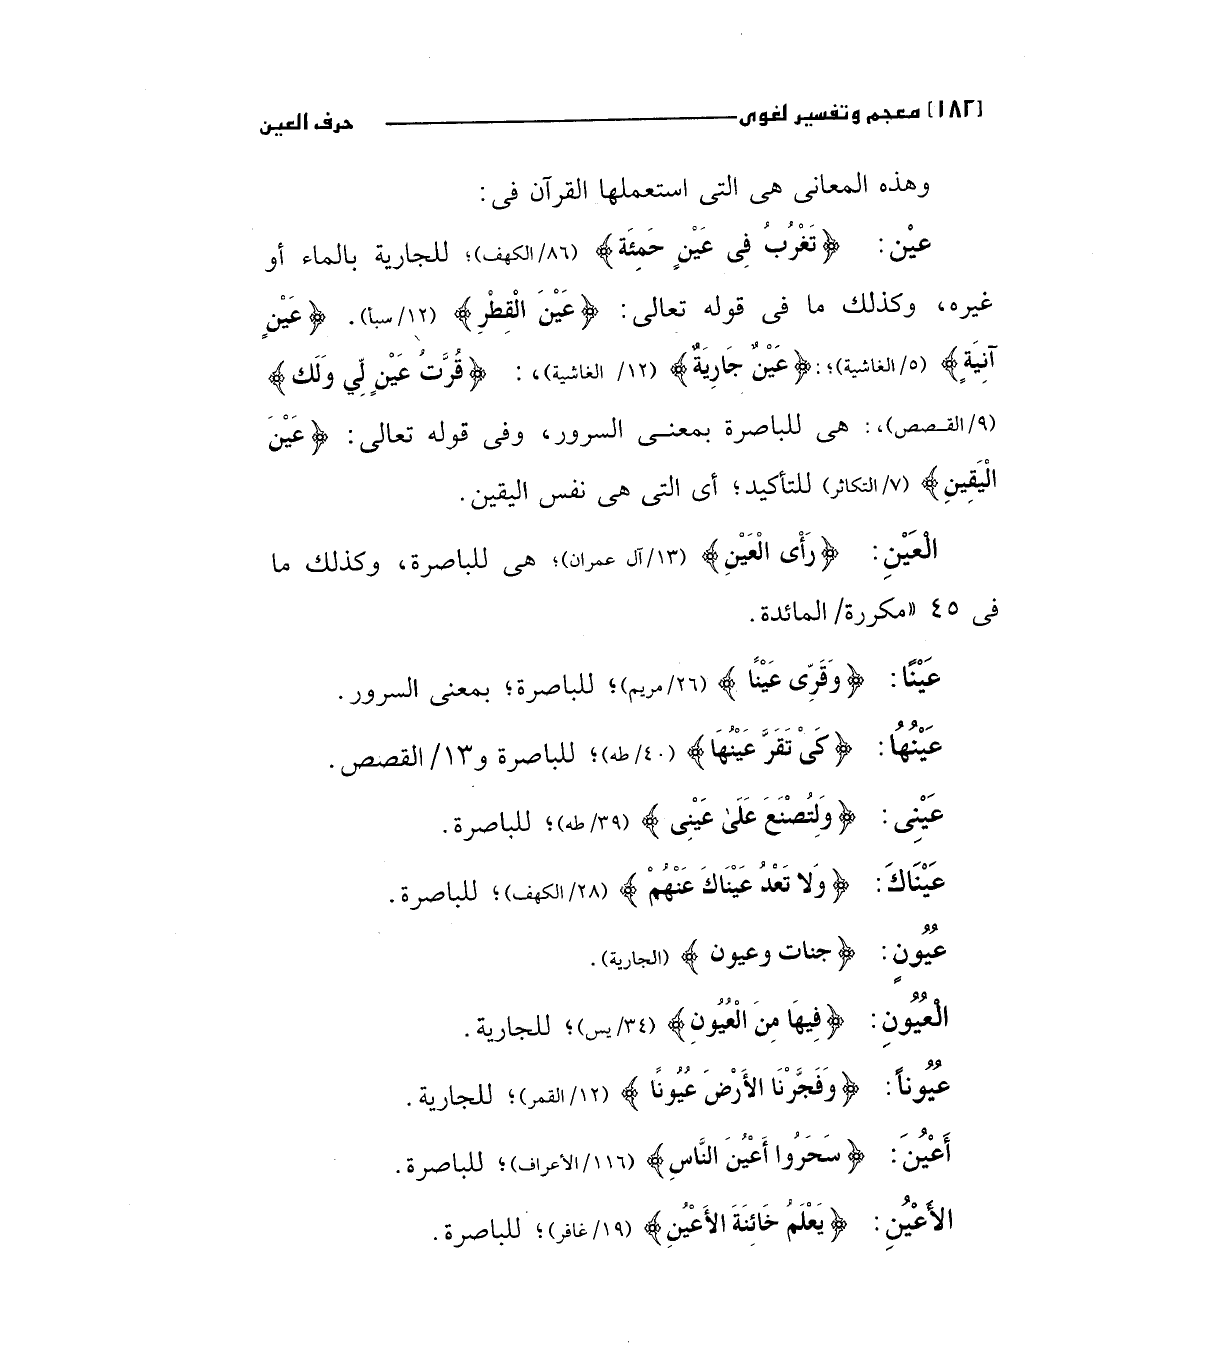 [١٨٢] معجم وتفسير لغوى — حرف العين
وهذه المعانى هى التى استعملها القرآن فى:
عيْن: ﴿تَغْرُبُ فِى عَيْنٍ حَمِئَة﴾ (٨٦/الكهف)؛ للجارية بالماء أو
غيره، وكذلك ما فى قوله تعالى: ﴿عَيْنَ الْقِطْرِ﴾ (١٢/سبأ). ﴿عَيْنٍ
آنِيَةٍ﴾ (٥/الغاشية)؛: ﴿عَيْنٌ جَارِيَةٌ﴾ (١٢/ الغاشية)،: ﴿قُرَّتُ عَيْنٍ لِّي وَلَك﴾
(٩/القصص)،: هى للباصرة بمعنى السرور، وفى قوله تعالى: ﴿عَيْنَ
الْيَقِينِ﴾ (٧/التكاثر) للتأكيد؛ أى التى هى نفس اليقين.
الْعَيْنِ: ﴿رَأْى الْعَيْنِ﴾ (١٣/آل عمران)؛ هى للباصرة، وكذلك ما
فى ٤٥ «مكررة/المائدة.
عَيْنًا: ﴿وَقَرِّى عَيْنًا﴾ (٢٦/مريم)؛ للباصرة؛ بمعنى السرور.
عَيْنُهَا: ﴿كَىْ تَقَرَّ عَيْنُهَا﴾ (٤٠/طه)؛ للباصرة و١٣/القصص.
عَيْنِى: ﴿وَلِتُصْنَعَ عَلَىٰ عَيْنِى﴾ (٣٩/طه)؛ للباصرة.
عَيْنَاكَ: ﴿وَلا تَعْدُ عَيْنَاكَ عَنْهُمْ﴾ (٢٨/الكهف)؛ للباصرة.
عيُونٍ: ﴿جنات وعيون﴾ (الجارية).
الْعُيُونِ: ﴿فِيهَا مِنَ الْعُيُونِ﴾ (٣٤/يس)؛ للجارية.
عيُوناً: ﴿وَفَجَّرْنَا الأَرْضَ عُيُونًا﴾ (١٢/القمر)؛ للجارية.
أَعْيُنَ: ﴿سَحَرُوا أَعْيُنَ النَّاسِ﴾ (١١٦/الأعراف)؛ للباصرة.
الأَعْيُنِ: ﴿يَعْلَمُ خَائِنَةَ الأَعْيُنِ﴾ (١٩/غافر)؛ للباصرة.